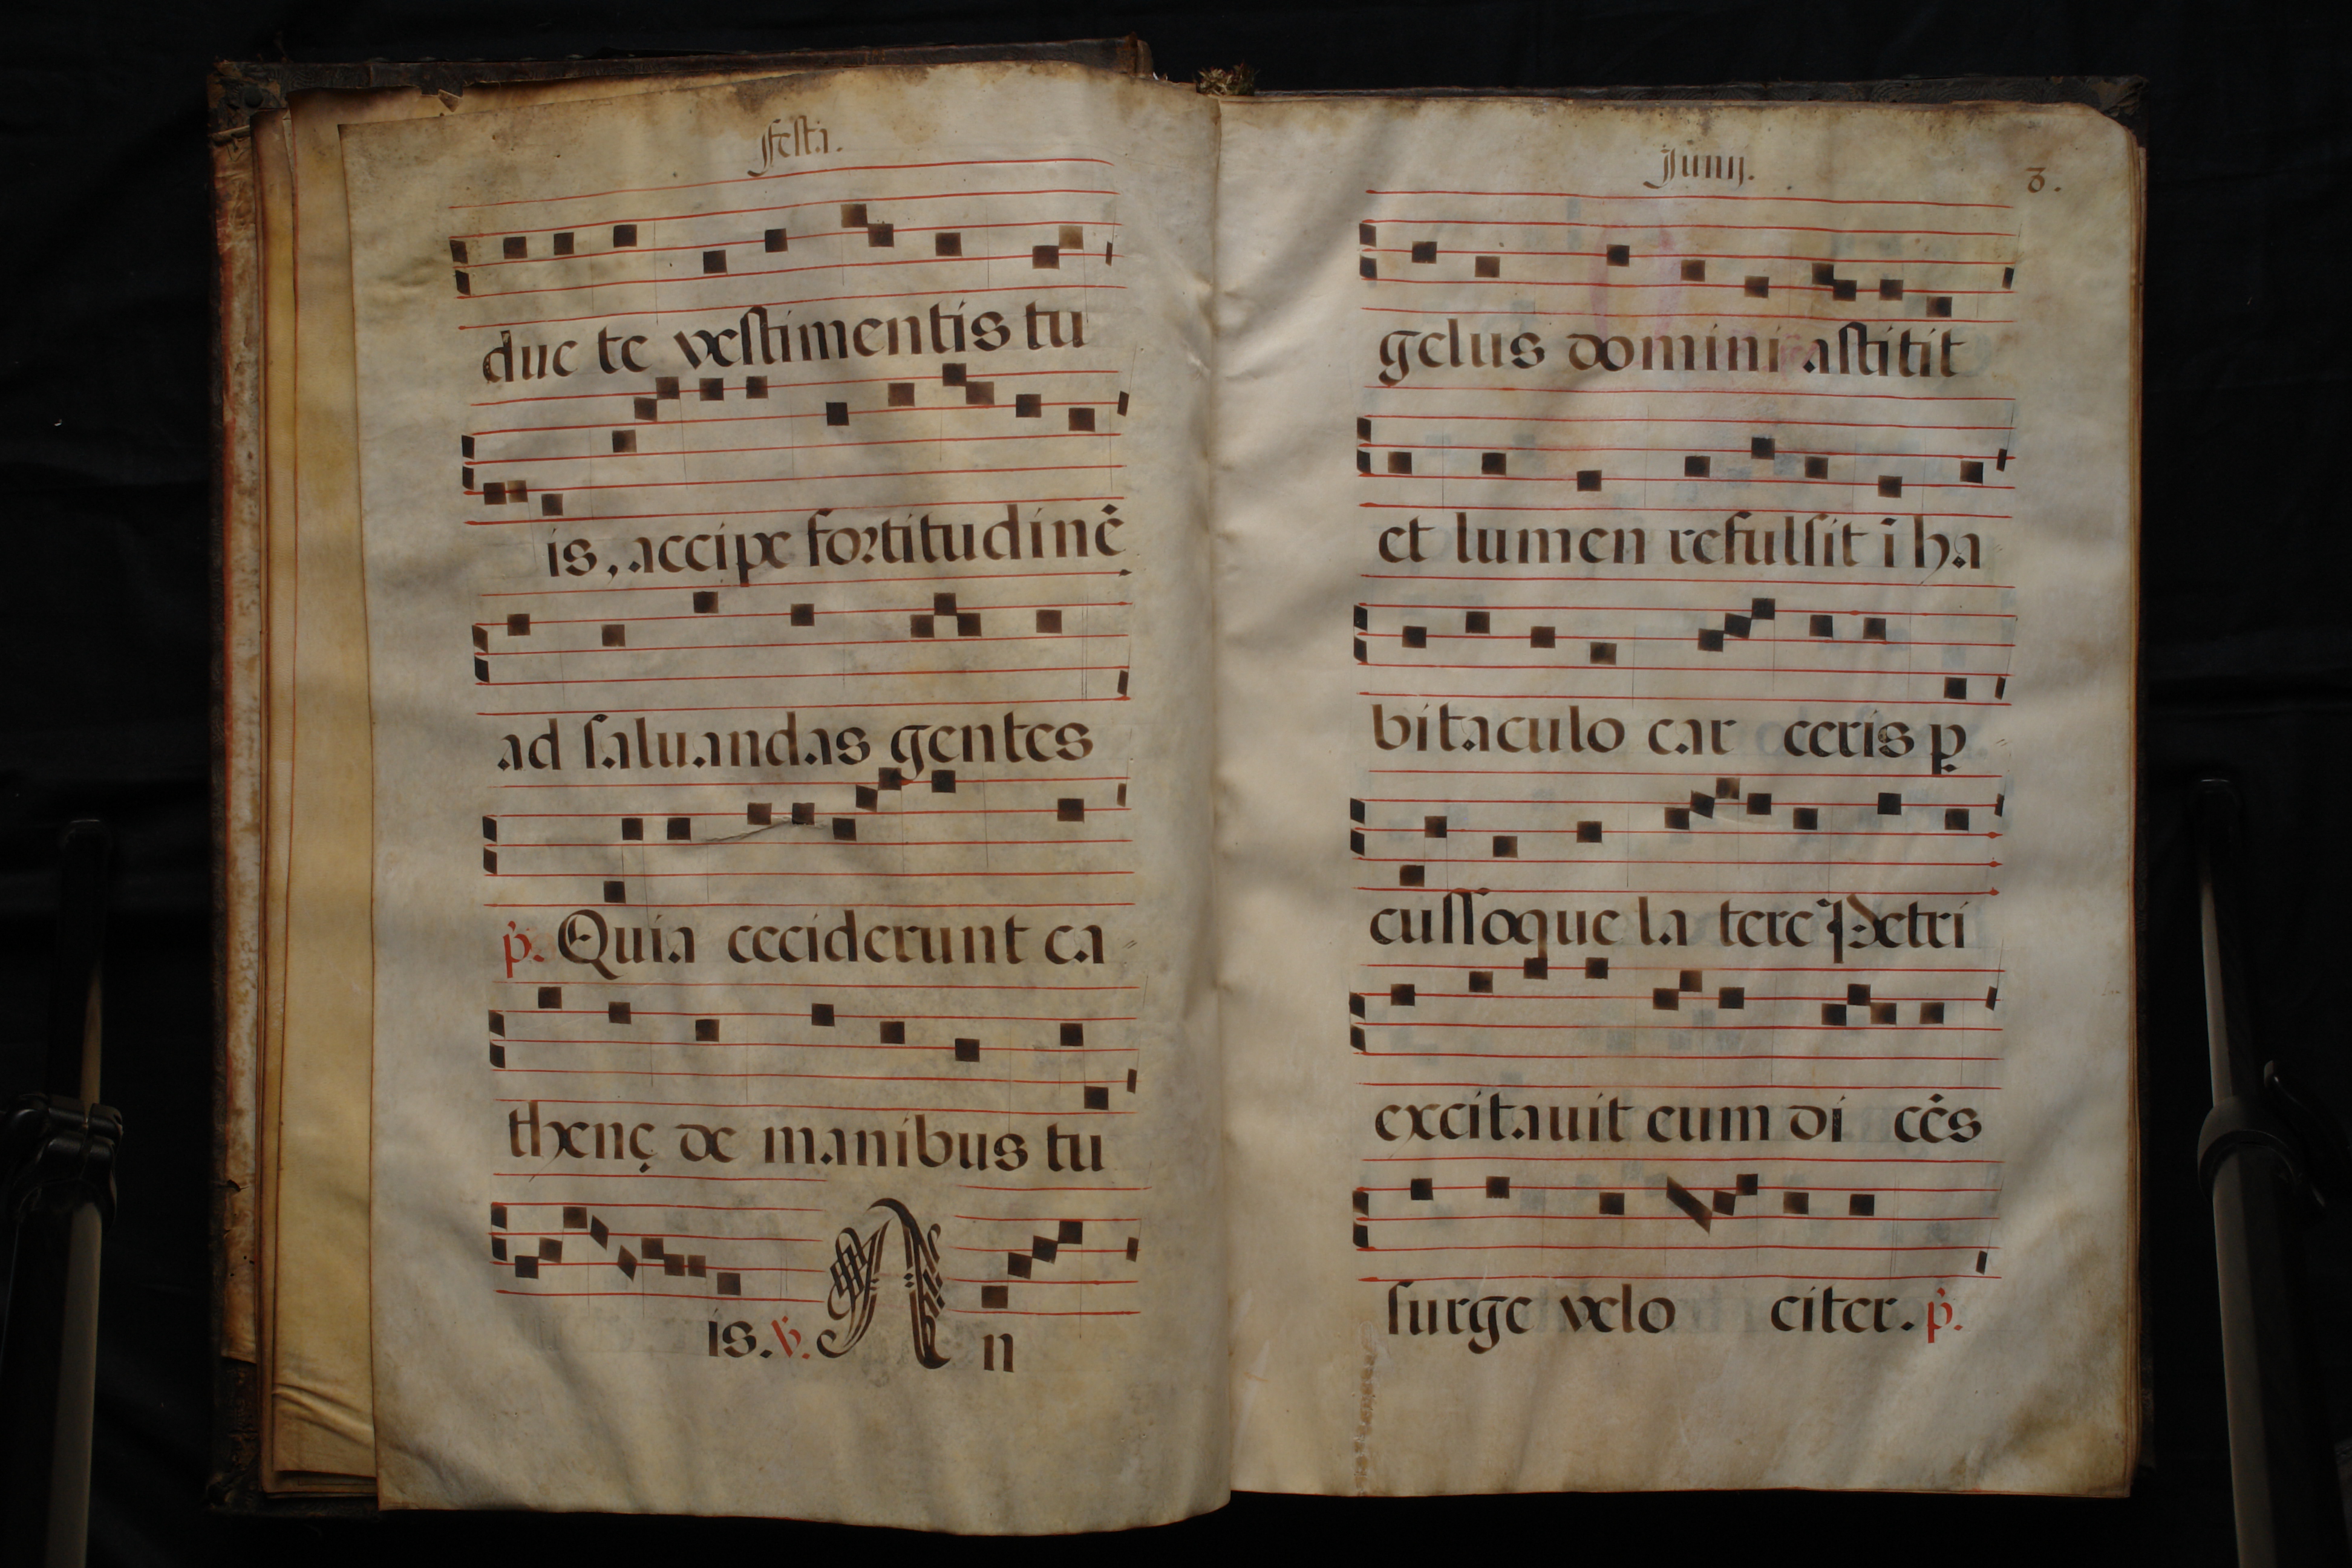 festi.
due te vestimentis tu
is, accipe fortitudinē
ad saluandas gentes
p̄. Quia ceciderunt ca
thenę de manibus tu
is. ℣. A n
Junij.
3.
gelus domini astitit
et lumen refulsit ī ha
bitaculo car ceris ꝑ
cussoque la tere Petri
excitauit eum di cēs
surge velo citer. p̄.